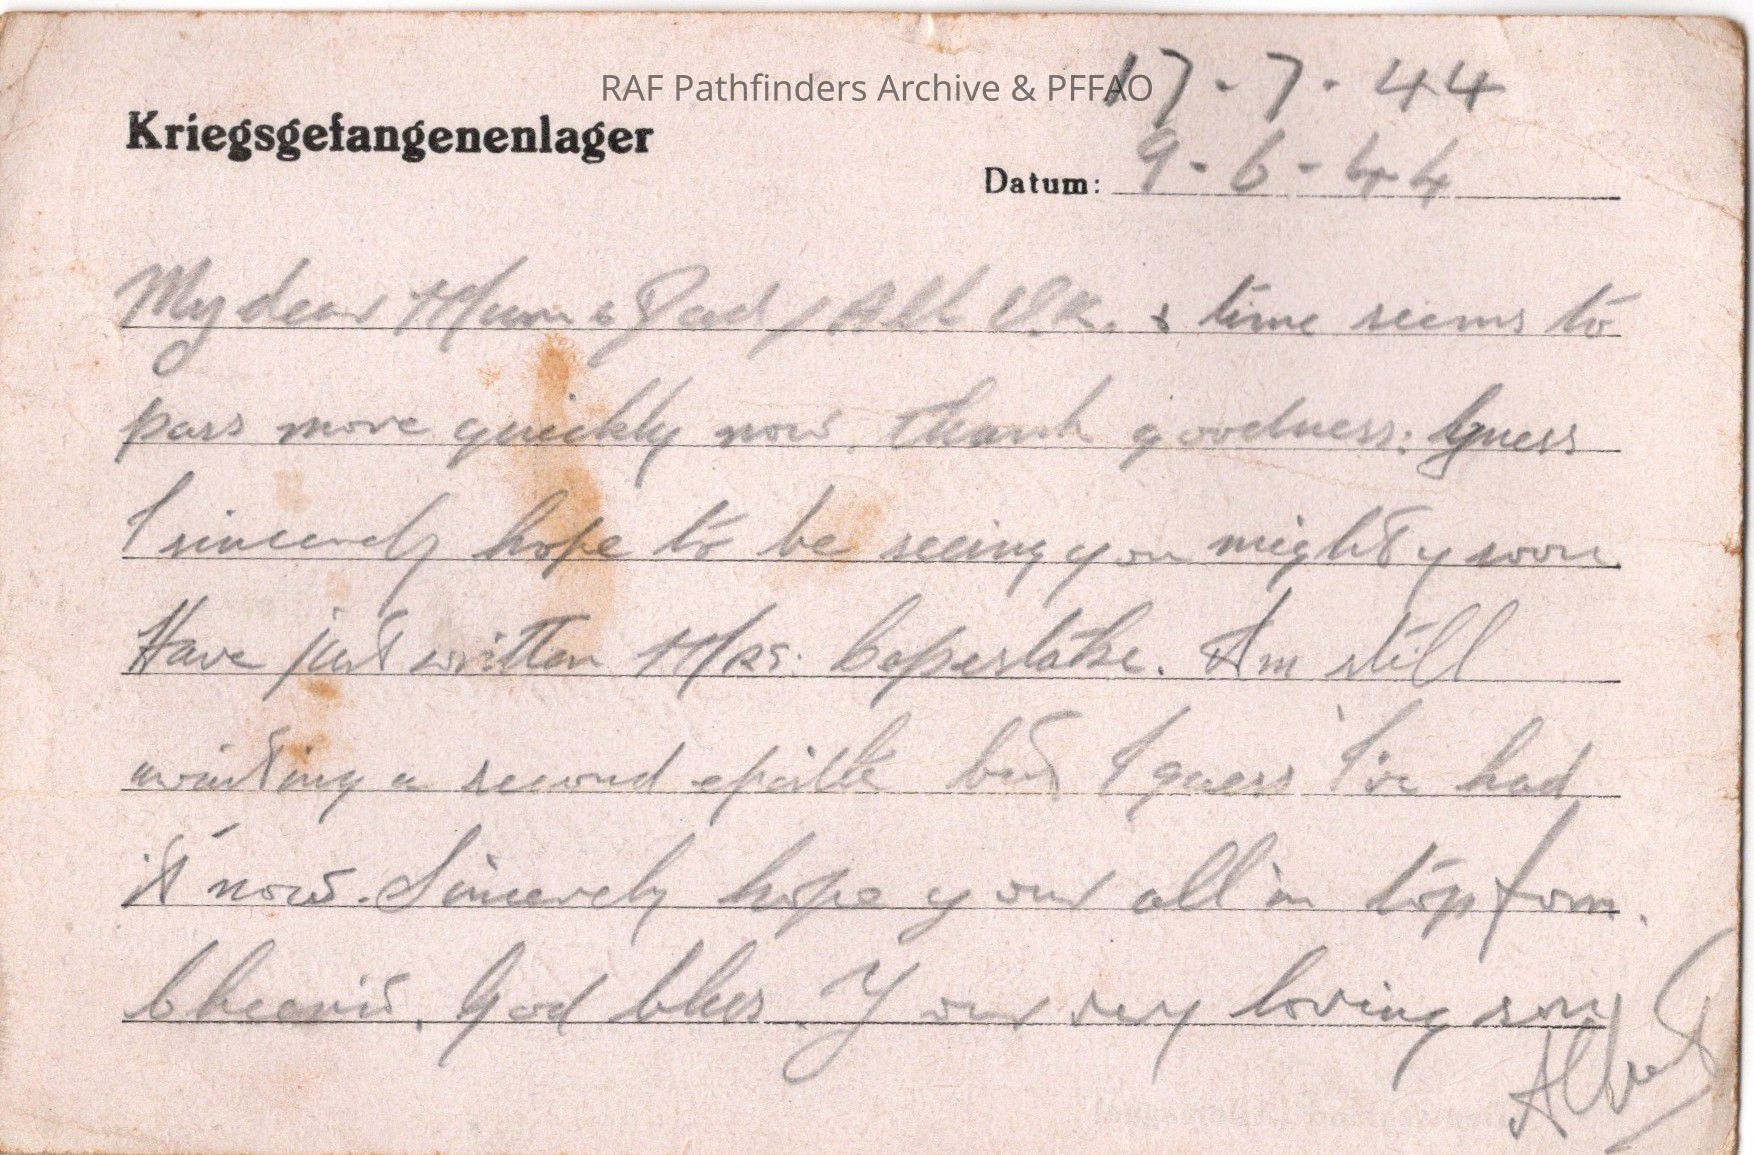 RAF Pathfinders Archive & PFFAO
17-7-44
Kriegsgefangenenlager
Datum: 9-6-44
My dear Mum & Dad, All O.K. & time seems to
pass more quickly now, thank goodness. Guess
I sincerely hope to be seeing you mighty soon.
Have just written Mrs. Copestake. Am still
waiting a second epistle but I guess I've had
it now. Sincerely hope your all in top form.
Cheerio, God bless. Your very loving son,
Albert